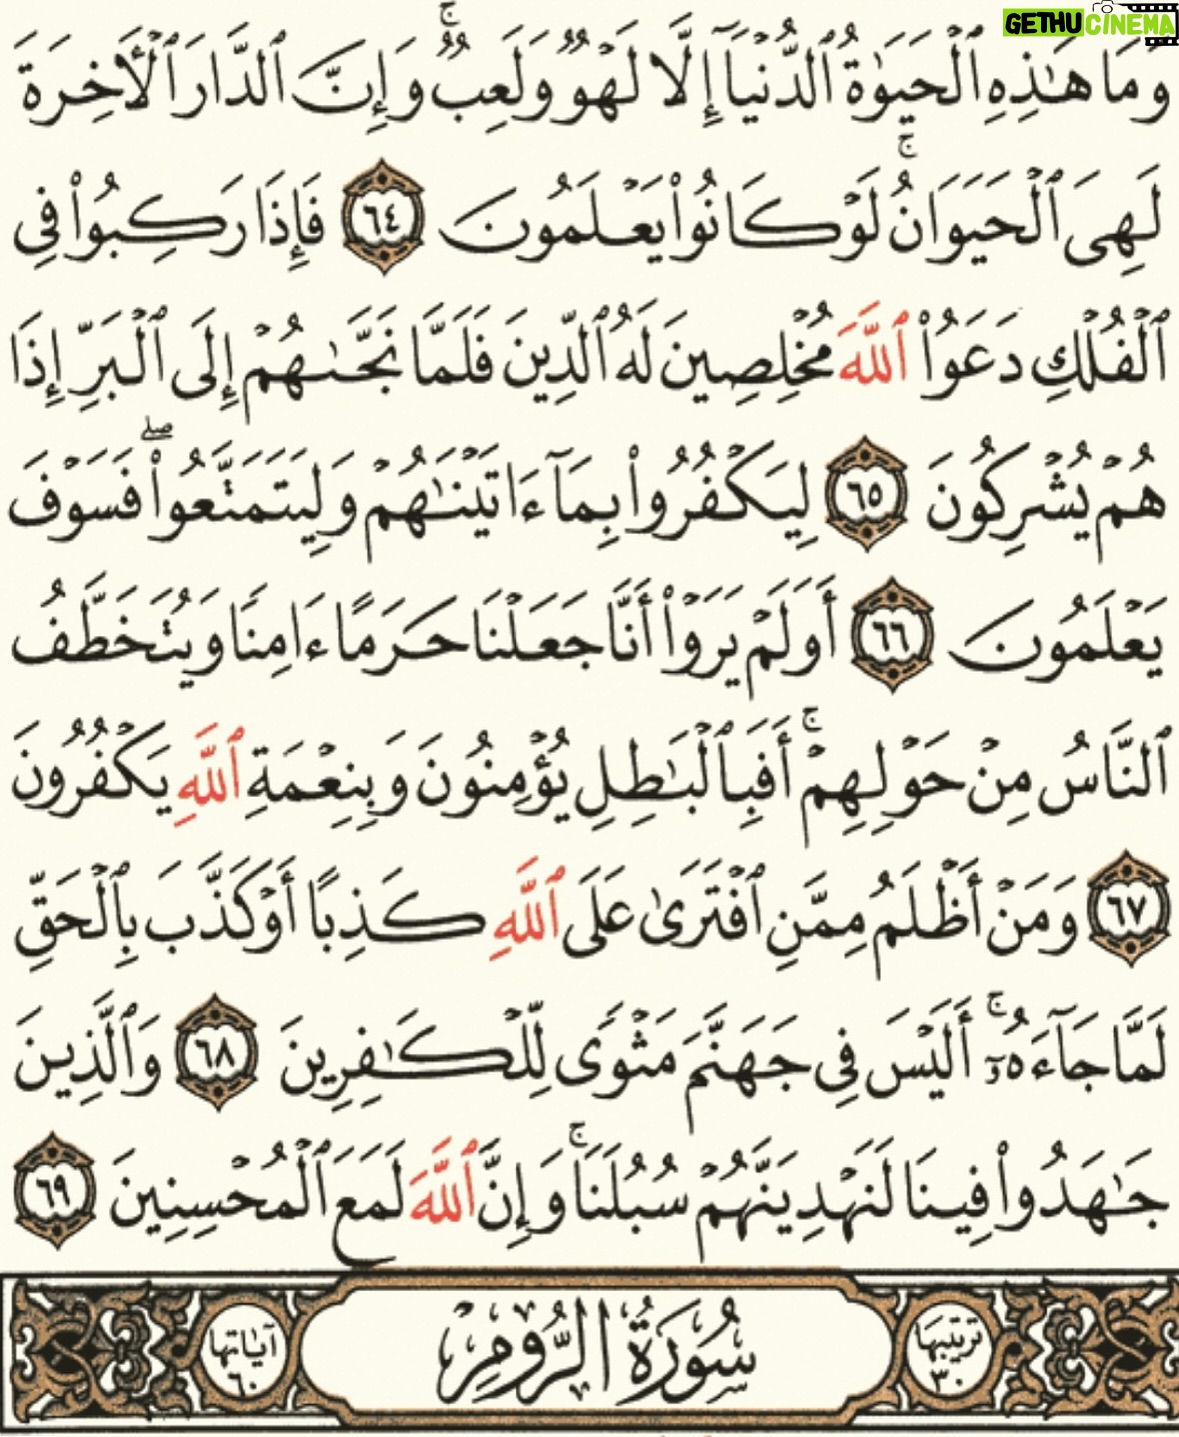 GETHUCINEMA
وَمَا هَٰذِهِ ٱلْحَيَوٰةُ ٱلدُّنْيَآ إِلَّا لَهْوٌ وَلَعِبٌ ۚ وَإِنَّ ٱلدَّارَ ٱلْأَخِرَةَ
لَهِىَ ٱلْحَيَوَانُ ۚ لَوْ كَانُوا۟ يَعْلَمُونَ ٦٤ فَإِذَا رَكِبُوا۟ فِى
ٱلْفُلْكِ دَعَوُا۟ ٱللَّهَ مُخْلِصِينَ لَهُ ٱلدِّينَ فَلَمَّا نَجَّىٰهُمْ إِلَى ٱلْبَرِّ إِذَا
هُمْ يُشْرِكُونَ ٦٥ لِيَكْفُرُوا۟ بِمَآ ءَاتَيْنَٰهُمْ وَلِيَتَمَتَّعُوا۟ ۖ فَسَوْفَ
يَعْلَمُونَ ٦٦ أَوَلَمْ يَرَوْا۟ أَنَّا جَعَلْنَا حَرَمًا ءَامِنًا وَيُتَخَطَّفُ
ٱلنَّاسُ مِنْ حَوْلِهِمْ ۚ أَفَبِٱلْبَٰطِلِ يُؤْمِنُونَ وَبِنِعْمَةِ ٱللَّهِ يَكْفُرُونَ
٦٧ وَمَنْ أَظْلَمُ مِمَّنِ ٱفْتَرَىٰ عَلَى ٱللَّهِ كَذِبًا أَوْ كَذَّبَ بِٱلْحَقِّ
لَمَّا جَآءَهُۥٓ ۚ أَلَيْسَ فِى جَهَنَّمَ مَثْوًى لِّلْكَٰفِرِينَ ٦٨ وَٱلَّذِينَ
جَٰهَدُوا۟ فِينَا لَنَهْدِيَنَّهُمْ سُبُلَنَا ۚ وَإِنَّ ٱللَّهَ لَمَعَ ٱلْمُحْسِنِينَ ٦٩
ترتيبها ٣٠ سُورَةُ الرُّومِ آياتها ٦٠